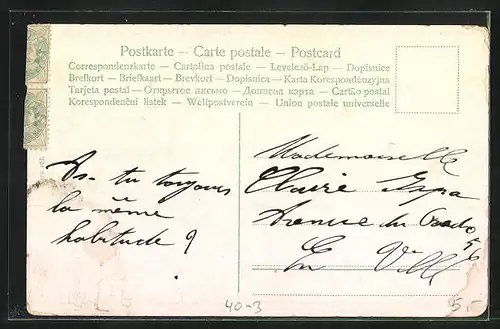 Postkarte – Carte postale – Postcard
Correspondenzkarte – Cartolina postale – Levelező-Lap – Dopisnice
Brefkort – Briefkaart – Brevkort – Dopisnica – Karta Korespondenzyjna
Tarjeta postal – Открытое письмо – Дописна карта – Cartão postal
Korespondenční listek – Weltpostverein – Union postale universelle
As-tu toujours
la même
habitude ?
Mademoiselle
Claire
Avenue du Prado
56
En Ville
40-3
5.-